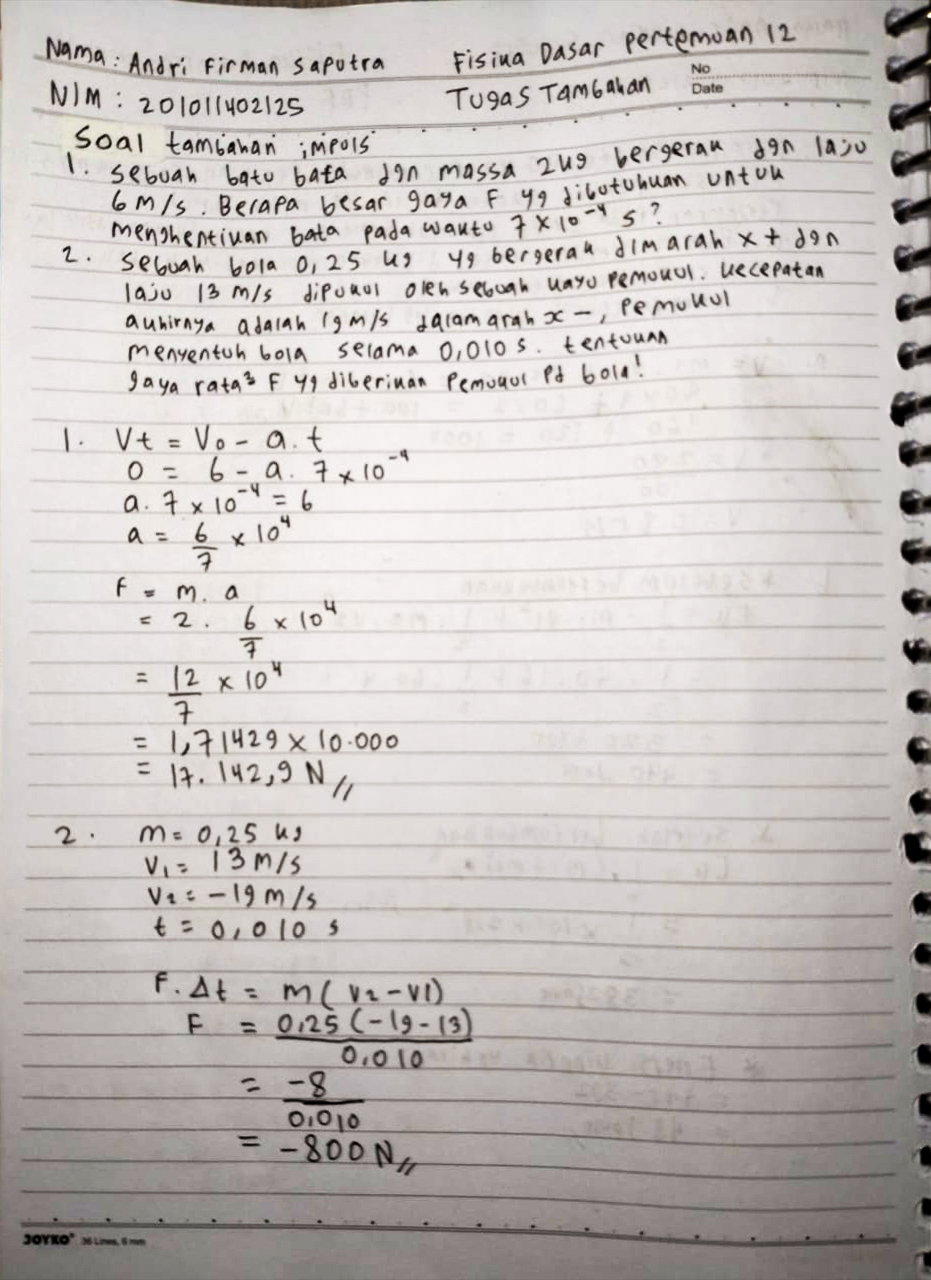 Nama : Andri Firman Saputra
Fisika Dasar Pertemuan 12
NIM : 201011402125
Tugas Tambahan
No
Date
Soal tambahan impols
1. Sebuah batu bata dgn massa 2kg bergerak dgn laju
6 m/s. Berapa besar gaya F yg dibutuhkan untuk
menghentikan bata pada waktu 7 x 10⁻⁴ s?
2. Sebuah bola 0,25 kg yg bergerak dlm arah x + dgn
laju 13 m/s dipukul oleh sebuah kayu pemukul. kecepatan
akhirnya adalah 19 m/s dalam arah x -, Pemukul
menyentuh bola selama 0,010 s. tentukan
gaya rata² F yg diberikan Pemukul Pd bola!
1. Vt = Vo - a.t
0 = 6 - a. 7 x 10⁻⁴
a. 7 x 10⁻⁴ = 6
a = 6/7 x 10⁴
F = m. a
= 2. 6/7 x 10⁴
= 12/7 x 10⁴
= 1,71429 x 10.000
= 17.142,9 N //
2. m = 0,25 kg
V₁ = 13 m/s
V₂ = -19 m/s
t = 0,010 s
F. Δt = m( V2 - V1)
F = 0,25 (-19 - 13)
0,010
= -8
0,010
= -800 N //
JOYKO 36 Lines, 6 mm